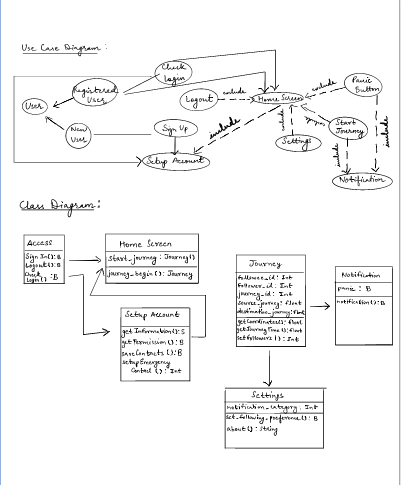 Use Case Diagram :
Check
Login
Panic
Button
Registered
User
exclude
Logout
exclude
Home Screen
User
Sign Up
Start
Journey
New
User
include
include
include
Settings
Setup Account
Notification
Class Diagram:
Access
Sign In(): B
Logout(): B
Check
Login(): B
Home Screen
start_journey : Journey()
journey_begin() : Journey
Setup Account
getInformation(): S
getPermission(): B
saveContacts(): B
setupEmergency
Contact () : Int
Journey
followee_id : Int
follower_id : Int
journey_id : Int
source_journey : float
destination_journey: float
getCoordinates(): float
getJourneyTime(): float
setFollowers(): Int
Notification
panic : B
notification(): B
Settings
notification_category : Int
set_following_preference(): B
about() : String